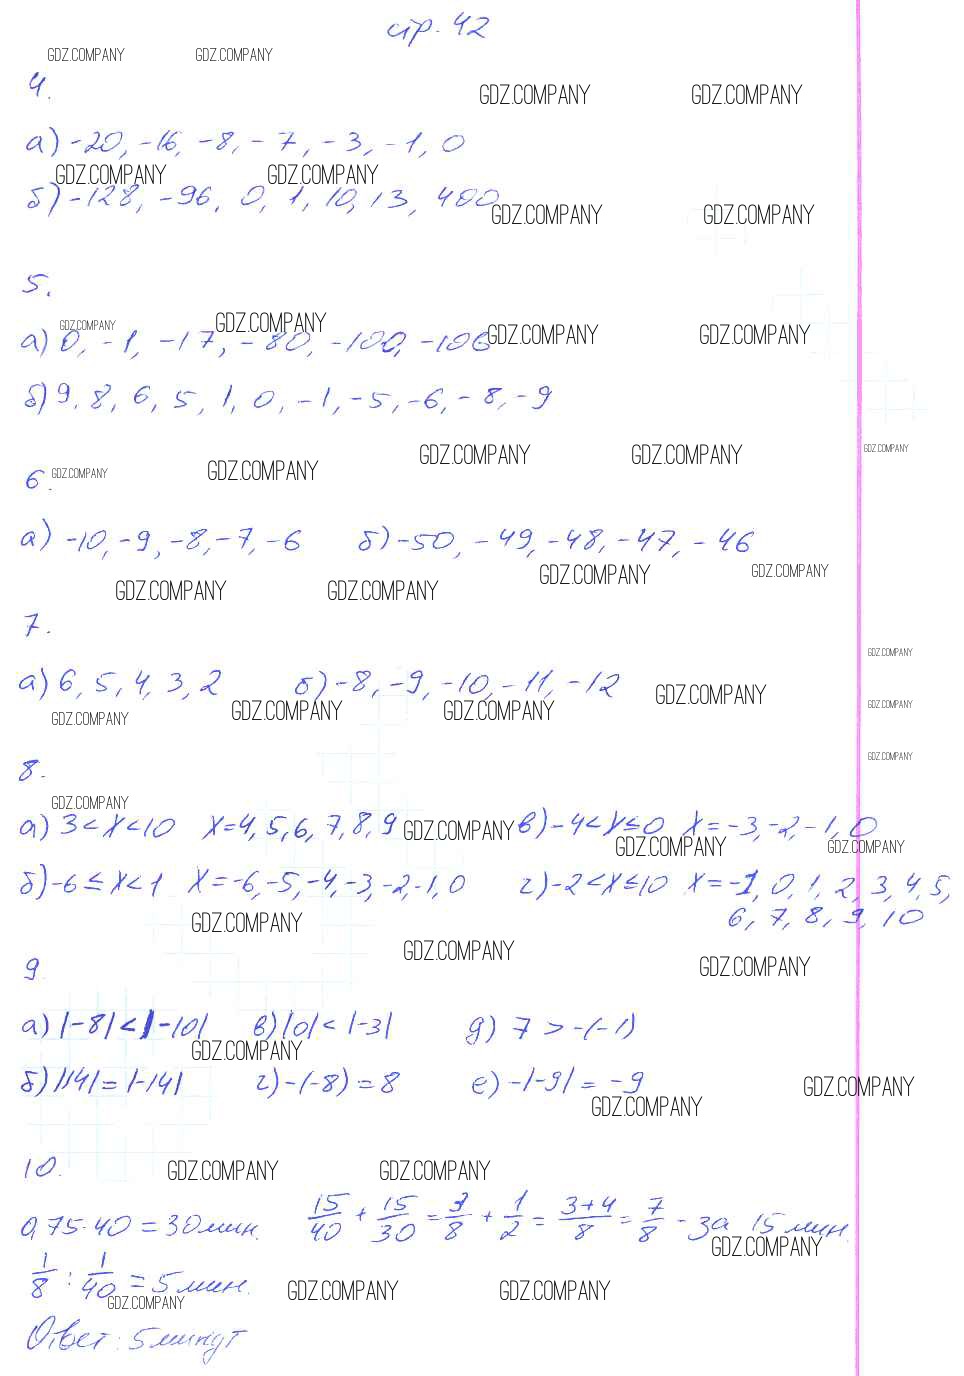 стр. 42
GDZ.COMPANY GDZ.COMPANY
4.
GDZ.COMPANY GDZ.COMPANY
а) -20, -16, -8, -7, -3, -1, 0
GDZ.COMPANY GDZ.COMPANY
б) -128, -96, 0, 1, 10, 13, 400
GDZ.COMPANY GDZ.COMPANY
5.
GDZ.COMPANY GDZ.COMPANY GDZ.COMPANY GDZ.COMPANY
а) 0, -1, -17, -80, -100, -106
б) 9, 8, 6, 5, 1, 0, -1, -5, -6, -8, -9
GDZ.COMPANY GDZ.COMPANY GDZ.COMPANY
6. GDZ.COMPANY GDZ.COMPANY
а) -10, -9, -8, -7, -6 б) -50, -49, -48, -47, -46
GDZ.COMPANY GDZ.COMPANY GDZ.COMPANY GDZ.COMPANY
7.
GDZ.COMPANY
а) 6, 5, 4, 3, 2 б) -8, -9, -10, -11, -12 GDZ.COMPANY
GDZ.COMPANY GDZ.COMPANY GDZ.COMPANY GDZ.COMPANY
GDZ.COMPANY
8.
GDZ.COMPANY
а) 3 < x < 10 x = 4, 5, 6, 7, 8, 9 GDZ.COMPANY в) -4 < x ≤ 0 x = -3, -2, -1, 0
GDZ.COMPANY GDZ.COMPANY
б) -6 ≤ x < 1 x = -6, -5, -4, -3, -2, -1, 0 г) -2 < x ≤ 10 x = -1, 0, 1, 2, 3, 4, 5,
6, 7, 8, 9, 10
GDZ.COMPANY
GDZ.COMPANY GDZ.COMPANY
9.
а) |-8| < |-10| в) |0| < |-3| д) 7 > -(-1)
GDZ.COMPANY
б) |14| = |-14| г) -(-8) = 8 е) -|-9| = -9
GDZ.COMPANY GDZ.COMPANY
10.
GDZ.COMPANY GDZ.COMPANY
0,75·40 = 30 мин. 15/40 + 15/30 = 3/8 + 1/2 = 3+4/8 = 7/8 - за 15 мин.
GDZ.COMPANY
1/8 : 1/40 = 5 мин.
GDZ.COMPANY GDZ.COMPANY GDZ.COMPANY
Ответ: 5 минут